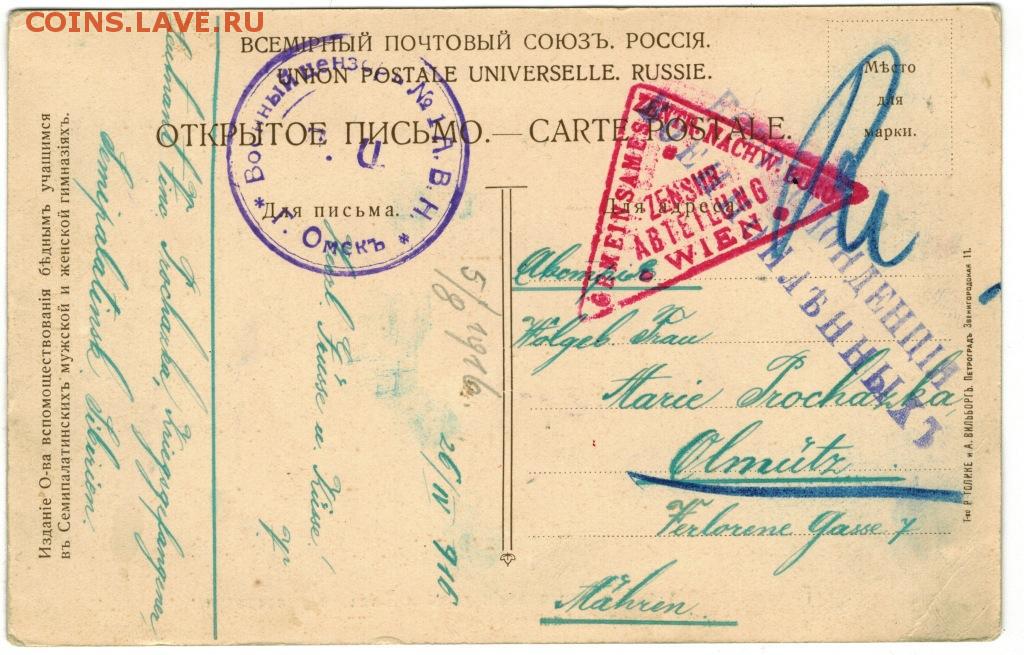 COINS.LAVE.RU
ВСЕМІРНЫЙ ПОЧТОВЫЙ СОЮЗЪ. РОССІЯ.
UNION POSTALE UNIVERSELLE. RUSSIE.
ОТКРЫТОЕ ПИСЬМО. — CARTE POSTALE.
Мѣсто
для
марки.
Для письма.
Для адреса.
Военный цензоръ № Н.А.В.Н.
* г. Омскъ *
GEMEINSAMES ZENTR. NACHW. BUREAU
ZENSUR
ABTEILUNG
WIEN
ВОЕННОПЛѢННЫХЪ
Wolgeb Frau
Marie Prochazka
Olmütz
Verlorene Gasse 7
Mähren.
5/8 1916.
26/IV 916
Grüsse u. Küsse!
Prochazka, Kriegsgefangener
Semipalatinsk Sibirien.
Изданіе О-ва вспомоществованія бѣднымъ учащимся
въ Семипалатинскихъ мужской и женской гимназіяхъ.
Т-во Р. ГОЛИКЕ и А. ВИЛЬБОРГЪ. ПЕТРОГРАДЪ. Звенигородская 11.